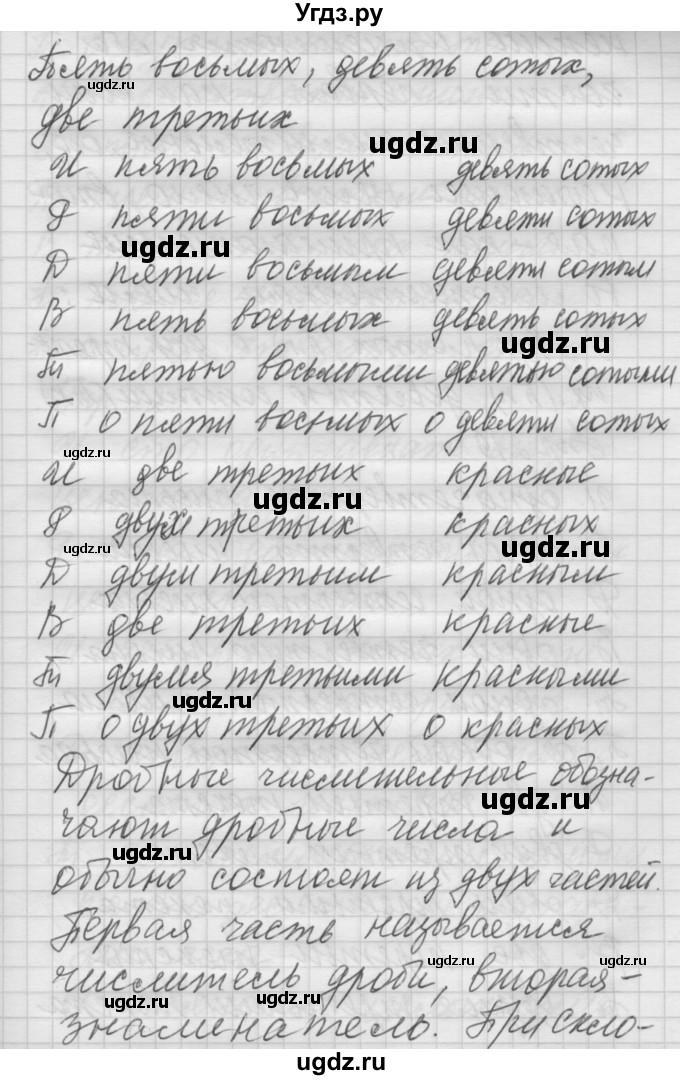 Угдз.ру
Пять восьмых, девять сотых,
ugdz.ru
две третьих
ugdz.ru
И пять восьмых девять сотых
Р пяти восьмых девяти сотых
ugdz.ru
Д пяти восьмым девяти сотым
В пять восьмых девять сотых
ugdz.ru
Тв пятью восьмыми девятью сотыми
П о пяти восьмых о девяти сотых
ugdz.ru
И две третьих красные
ugdz.ru
Р двух третьих красных
ugdz.ru ugdz.ru
Д двум третьим красным
В две третьих красные
Тв двумя третьими красными
ugdz.ru
П о двух третьих о красных
Дробные числительные обозна-
ugdz.ru
чают дробные числа и
ugdz.ru
обычно состоят из двух частей.
Первая часть называется
ugdz.ru
числитель дроби, вторая -
ugdz.ru ugdz.ru
знаменатель. При скло-
ugdz.ru